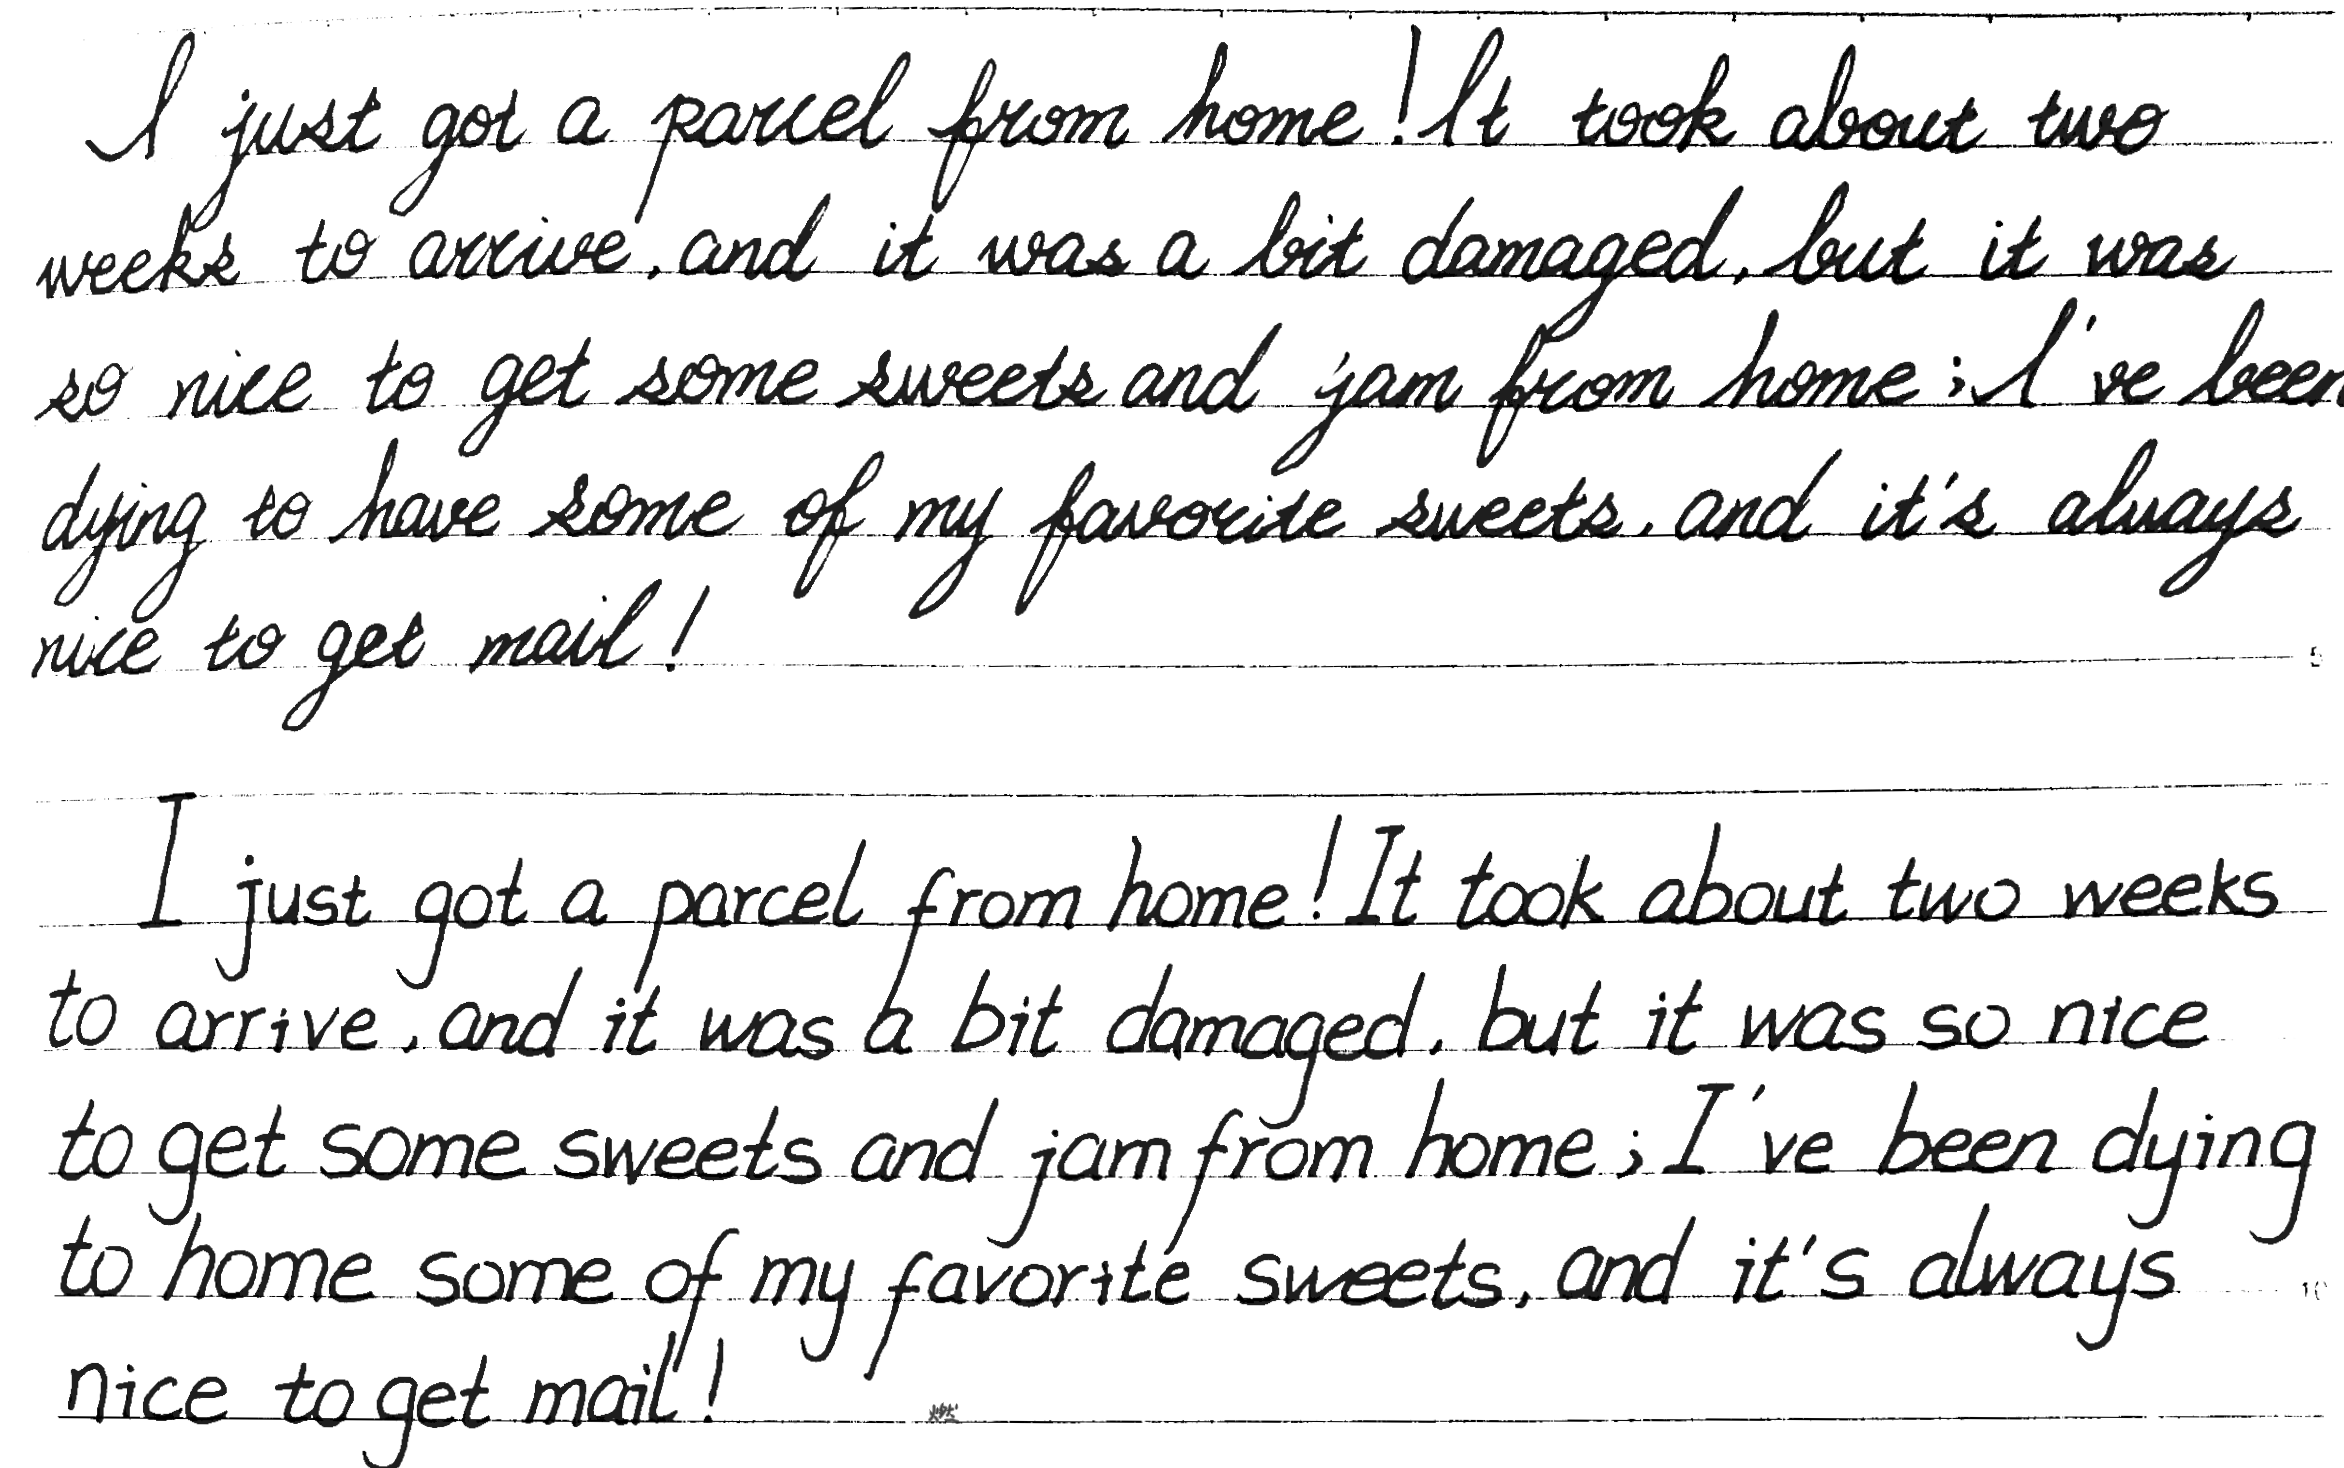 I just got a parcel from home! It took about two
weeks to arrive, and it was a bit damaged, but it was
so nice to get some sweets and jam from home; I've been
dying to have some of my favorite sweets, and it's always
nice to get mail!
5
I just got a parcel from home! It took about two weeks
to arrive, and it was a bit damaged, but it was so nice
to get some sweets and jam from home; I've been dying
to home some of my favorite sweets, and it's always
10
nice to get mail!